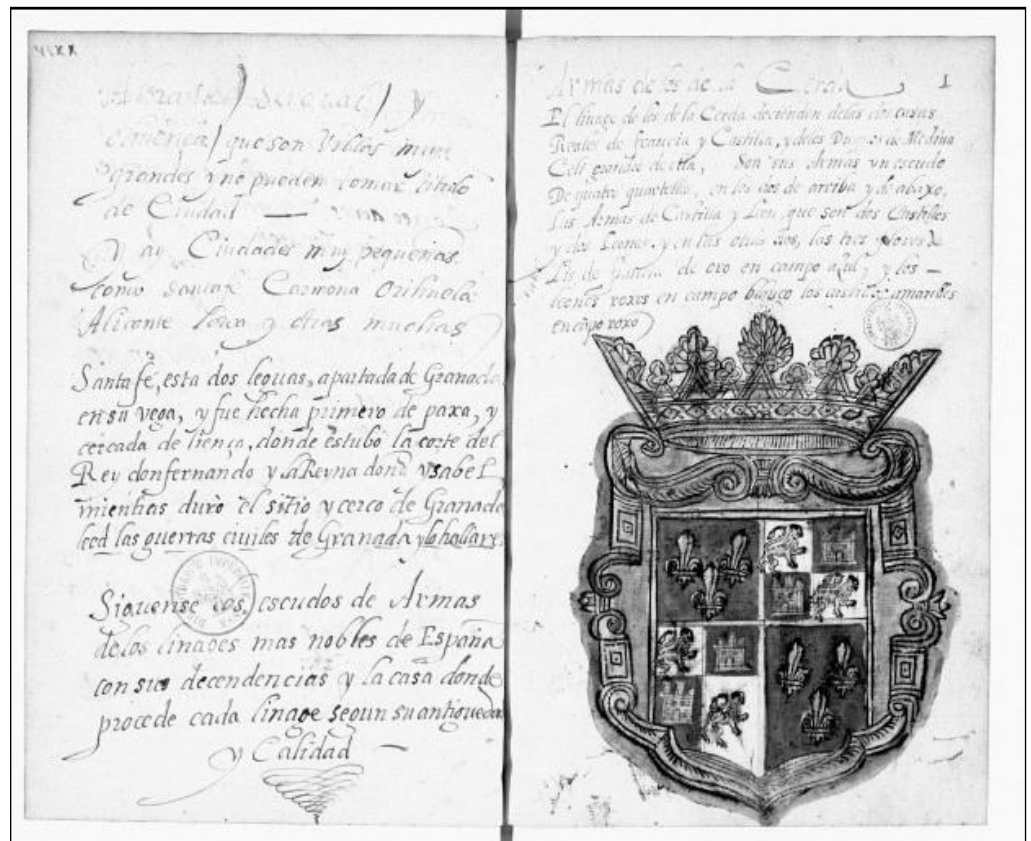 y
que son Villas muy
grandes y no pueden tomar titulo
de Ciudad
Y ay Ciudades muy pequeñas
como Santafe Carmona Orihuela
Alicante Lorca y otras muchas
Santafe, esta dos leguas, apartada de Granada
en su vega, y fue hecha primero de paxa, y
cercada de lienço, donde estubo la corte del
Rey don fernando y la Reyna doña ysabel
mientras duró el sitio y cerco de Granada
leed las guerras civiles de Granada y lo
Siguense los escudos de Armas
de los linages mas nobles de España
con sus decendencias y la casa donde
procede cada linage segun su antiguedad
y Calidad
Armas de los de la Cerda 1
El linage de los de la Cerda decienden de las dos casas
Reales de francia y Castilla, y de los Duques de Medina
Celi grandes de ella, Son sus Armas un escudo
De quatro quarteles, en los dos de arriba y de abaxo,
Las Armas de Castilla y Leon, que son dos Castillos
y dos Leones, y en las otras dos, las tres flores de
Lis de francia de oro en campo açul, y los
leones roxos en campo los castillos amarillos
en cãpo roxo